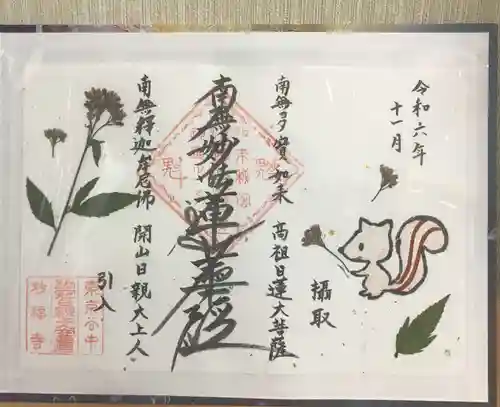 令和六年
十一月
摂取
南無多寶如来 高祖日蓮大菩薩
南無妙法蓮華経
南無釋迦牟尼佛 開山日親大上人
引入
東京谷中
妙福寺